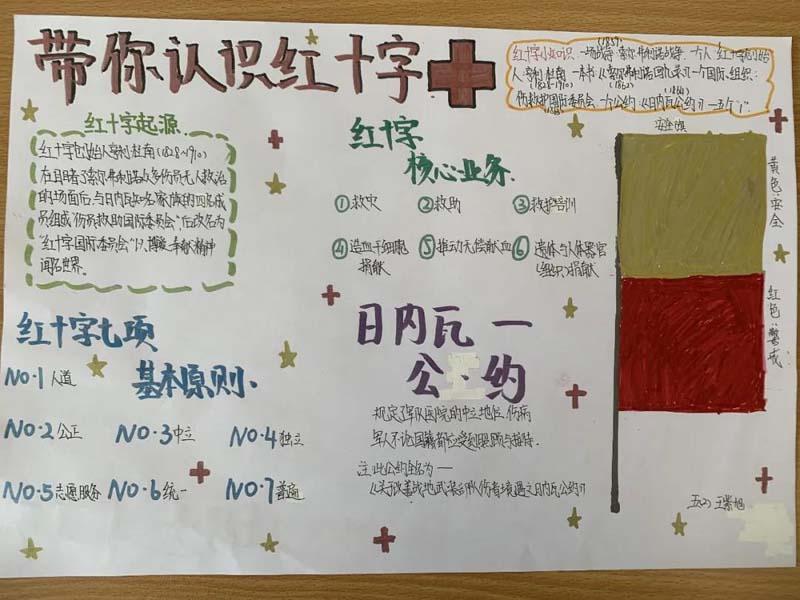 带你认识红十字
(1859)
红十字小知识 一场战争:索尔弗利诺战争 一个人:红十字创始
人:亨利·杜南 一本书:《索尔弗利诺回忆录》一个国际组织:
(1828-1910) (1862) (1864)
伤兵救护国际委员会 一个公约:《日内瓦公约》 —五个“1”
红十字起源
红十字创始人亨利·杜南(1828~1910)
在目睹了索尔弗利诺众多伤员无人救治
的场面后,与日内瓦知名家族的四名成
员组成“伤兵救助国际委员会”,后改名为
“红十字国际委员会”
闻名世界。
红十字
核心业务
①救灾 ②救助 ③救护培训
④造血干细胞
捐献
⑤推动无偿献血
⑥遗体与人体器官
(组织)捐献
红十字七项
基本原则
NO.1 人道
NO.2 公正 NO.3 中立 NO.4 独立
NO.5 志愿服务 NO.6 统一 NO.7 普遍
日内瓦 一
公 约
规定了军队医院的中立地位,伤病
军人不论国籍都应受到照顾与接待.
注:此公约全名为——
《关于改善战地武装部队伤者境遇之日内瓦公约》
安全旗
黄色:安全
红色:警戒
五(2) 王紫旭